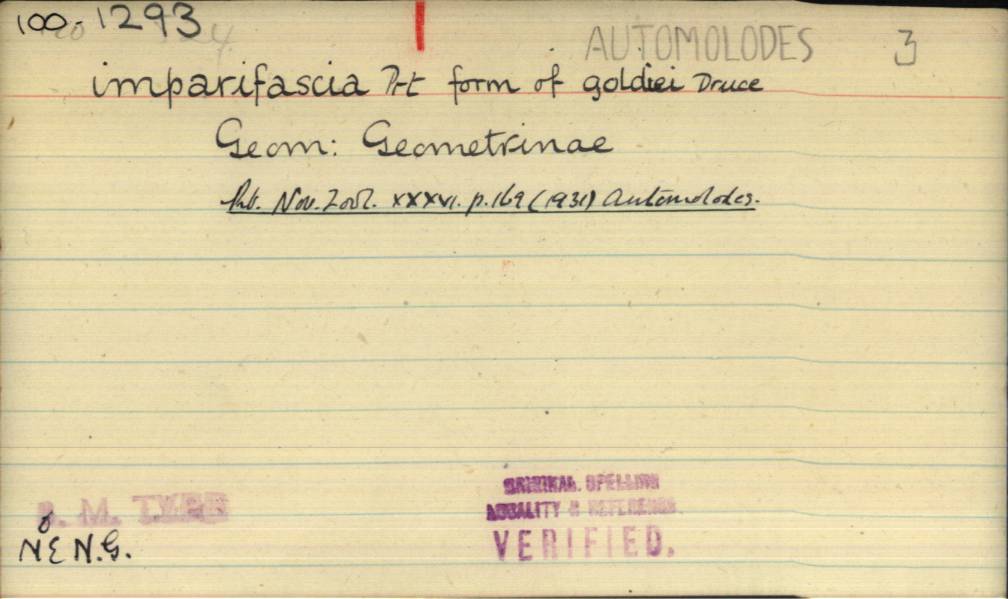 100-1293
AUTOMOLODES 3
imparifascia Prt form of goldiei Druce
Geom: Geometrinae
Prt. Nov. Zool. XXXVI. p.169 (1931) Automolodes.
B. M. TYPE
N E N.G.
ORIGINAL SPELLING
LOCALITY & REFERENCE
VERIFIED.